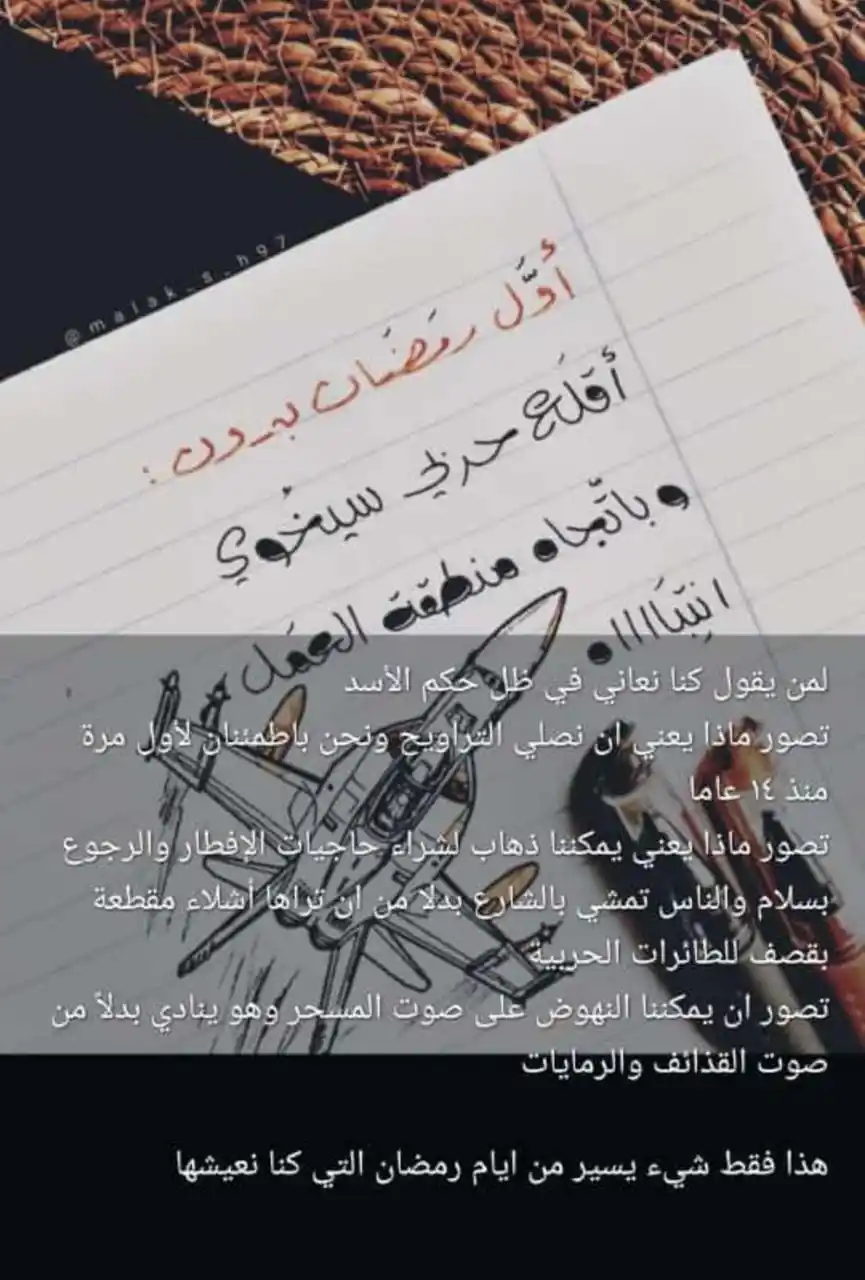 @malak_s_h97
أَوَّل رمَضَان بدون :
أقلَع حربي سيخُوي
وباتّجاه منطقة العمَل
انتبَاااا.
لمن يقول كنا نعاني في ظل حكم الأسد
تصور ماذا يعني ان نصلي التراويح ونحن باطمئنان لأول مرة
منذ ١٤ عاما
تصور ماذا يعني يمكننا ذهاب لشراء حاجيات الإفطار والرجوع
بسلام والناس تمشي بالشارع بدلا من ان تراها أشلاء مقطعة
بقصف للطائرات الحربية
تصور ان يمكننا النهوض على صوت المسحر وهو ينادي بدلاً من
صوت القذائف والرمايات
هذا فقط شيء يسير من ايام رمضان التي كنا نعيشها